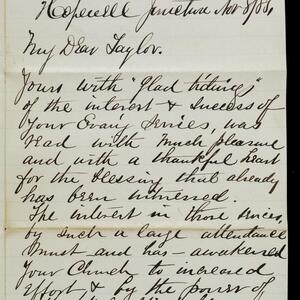 Hopewell Junction Nov 8/88,
My Dear Taylor.
Yours with "glad tidings"
of the interest & success of
Your Evang services, was
read with much pleasure
and with a thankful heart
for the blessing that already
has been witnessed.
The interest in those services,
by such a large attendance
must and has awakened
Your Church to increased
effort & by the power of